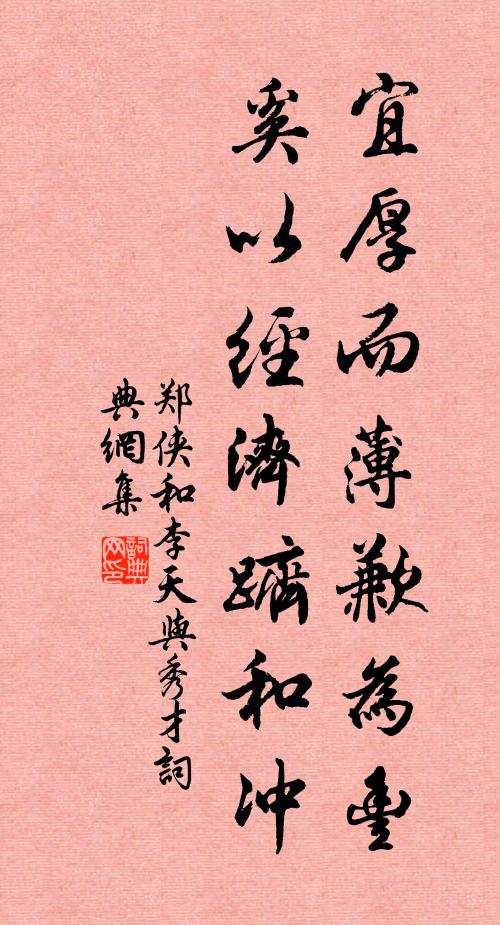 宜厚而薄歉為豐
奚以經濟躋和沖
郑侠和李天與秀才詞
典網集
詞典网印